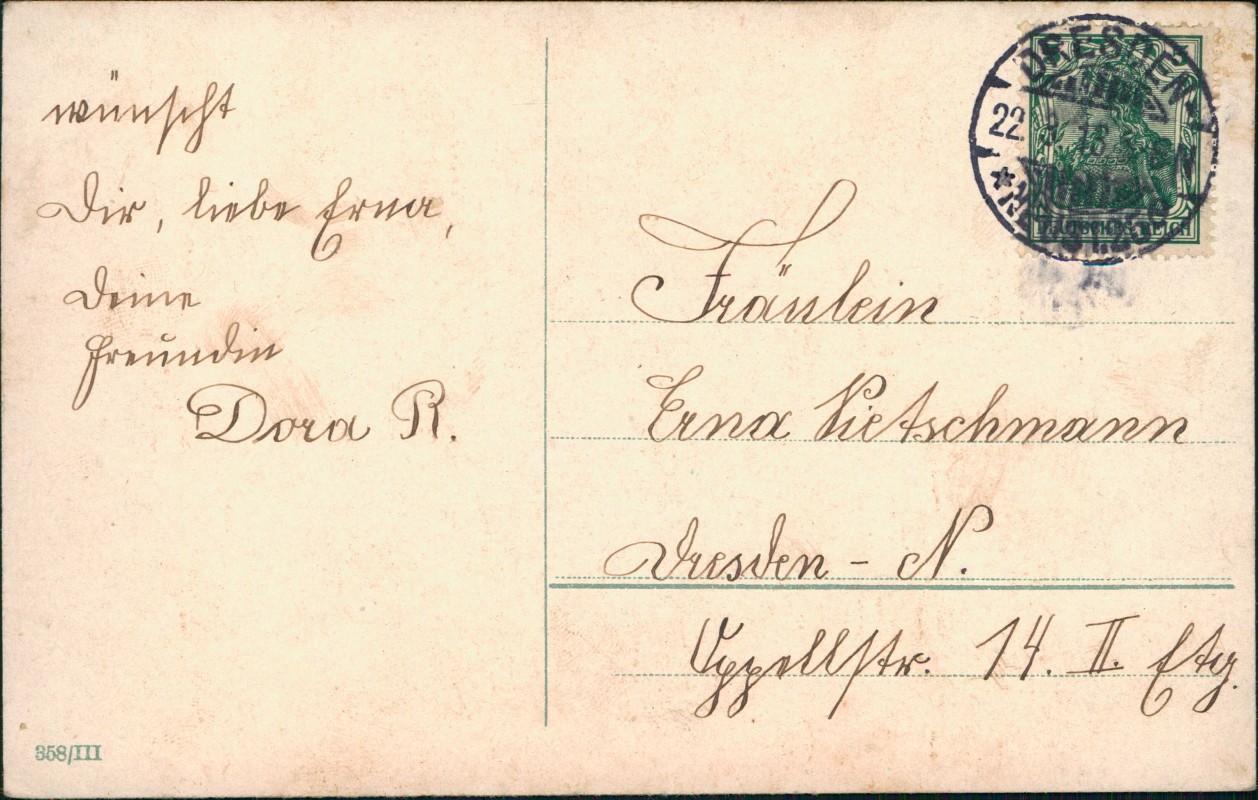 wünscht
Dir, liebe Erna,
Deine
Freundin
Dora R.
358/III
DRESDEN
22. 13
DEUTSCHES REICH
Fräulein
Erna Pietschmann
Dresden - N.
Oppellstr. 14. II. Etg.